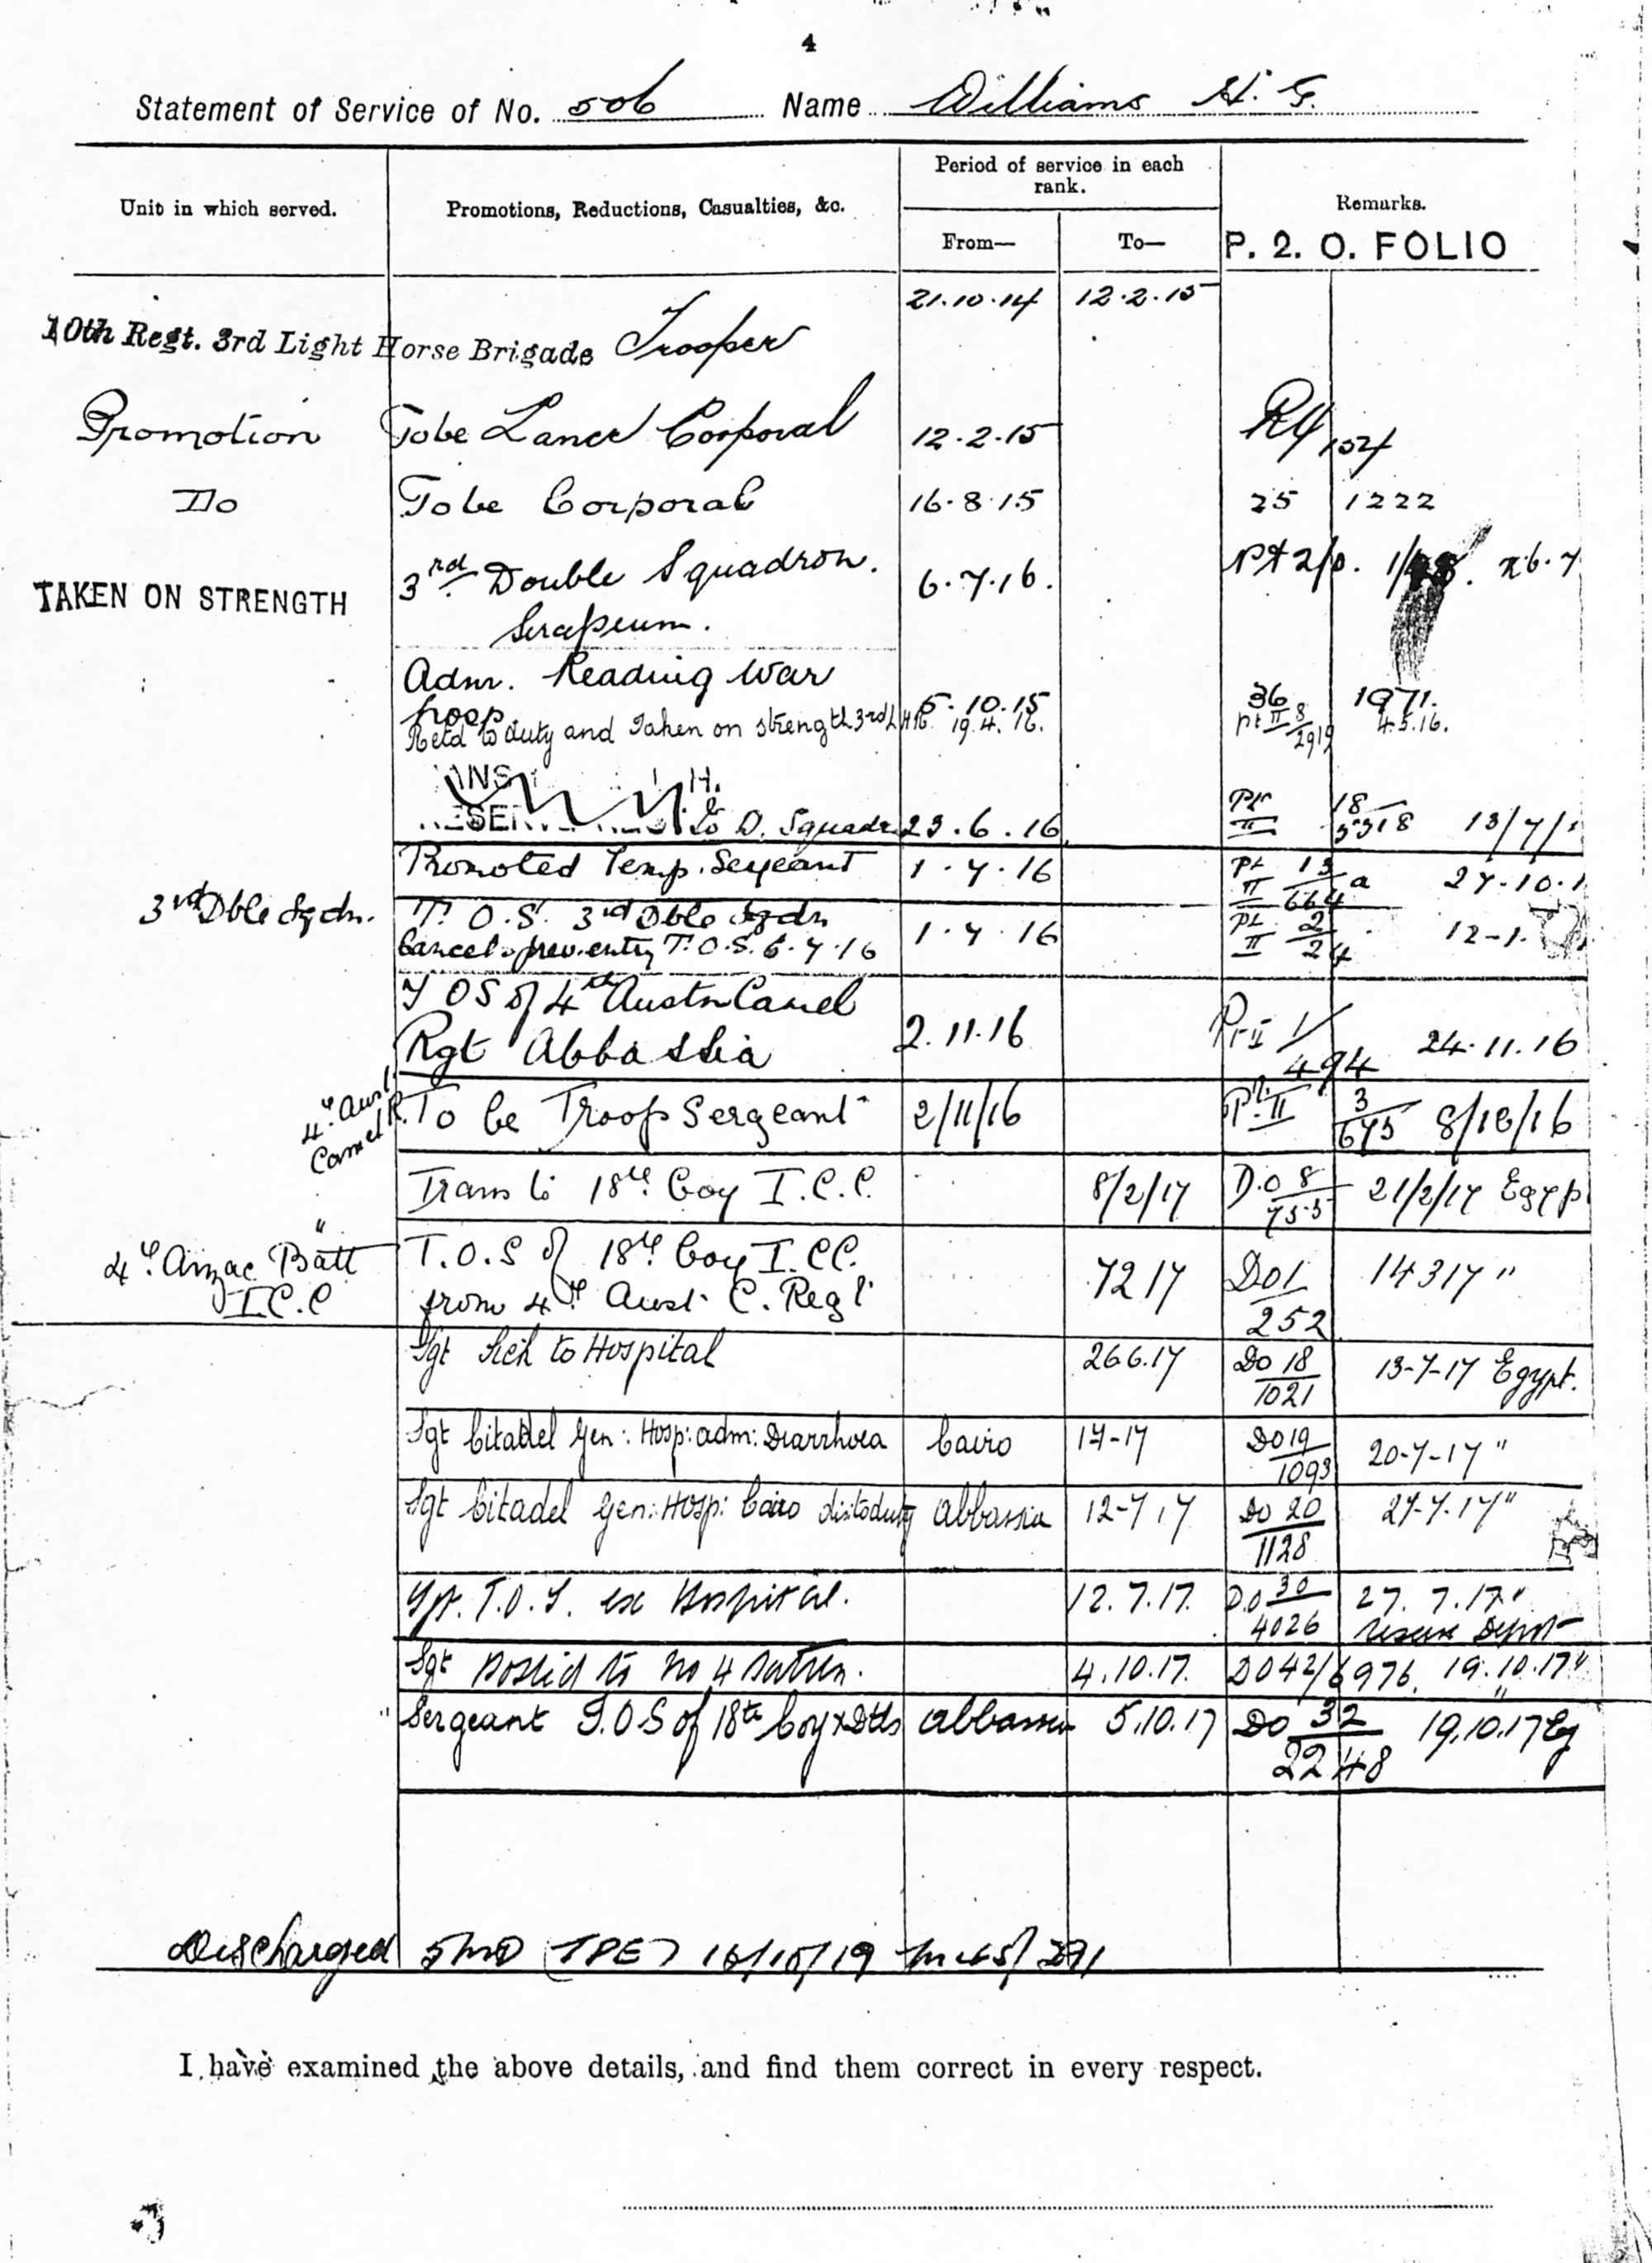 4
Statement of Service of No. 506 Name Williams H. G.
Unit in which served.
Promotions, Reductions, Casualties, &c.
Period of service in each rank.
From—
To—
Remarks.
P. 2. O. FOLIO
21.10.14 12.2.15
10th Regt. 3rd Light Horse Brigade Trooper
Promotion To be Lance Corporal 12.2.15 154
Do To be Corporal 16.8.15 25 1222
TAKEN ON STRENGTH 3rd Double Squadron. 6.7.16.
Serapeum.
Adm. Reading War
Hosp. 5.10.15 36 1971.
Retd to duty and Taken on strength 3rd LH 19.4.16. pt II 8/2919 4.5.16.
to D. Squadn 23.6.16 Pt II 18 13/7/
Promoted Temp. Sergeant 1.7.16 Pt II 13/664 a 27.10.1
3rd Dble Sqdn. T.O.S. 3rd Dble Sqdn
Cancels prev. entry T.O.S. 6.7.16 1.7.16 Pt II 2/24 12-1.
T O S of 4th Austn Camel
Rgt Abbassia 2.11.16 Pt II 1/494 24.11.16
4th Aust Camel R. To be Troop Sergeant 2/11/16 Pt. II 3/675 8/12/16
Trans to 18th Coy I.C.C. 8/2/17 D.O 8/755 21/2/17 Egyp
4th Anzac Batt I.C.C T.O.S of 18th Coy I.C.C.
from 4th Aust. C. Regt 7 2 17 DO 1/252 14 3 17 "
Sgt Sick to Hospital 26.6.17 DO 18/1021 13-7-17 Egypt.
Sgt Citadel Gen: Hosp: adm: Diarrhoea Cairo 1-7-17 DO 19/1093 20-7-17 "
Sgt Citadel Gen: Hosp: Cairo dis to duty Abbassia 12-7-17 DO 20/1128 27-7-17 "
Sgt. T.O.S. ex Hospital. 12.7.17. D.O 30/4026 27.7.17 "
Reserve Depot
Sgt Posted to No 4 Battn. 4.10.17. DO 42/6976. 19.10.17 "
Sergeant T.O.S of 18th Coy x Dtls Abbassia 5.10.17 DO 32/2248 19.10.17 Eg
Discharged 5 MD (TPE)
I have examined the above details, and find them correct in every respect.